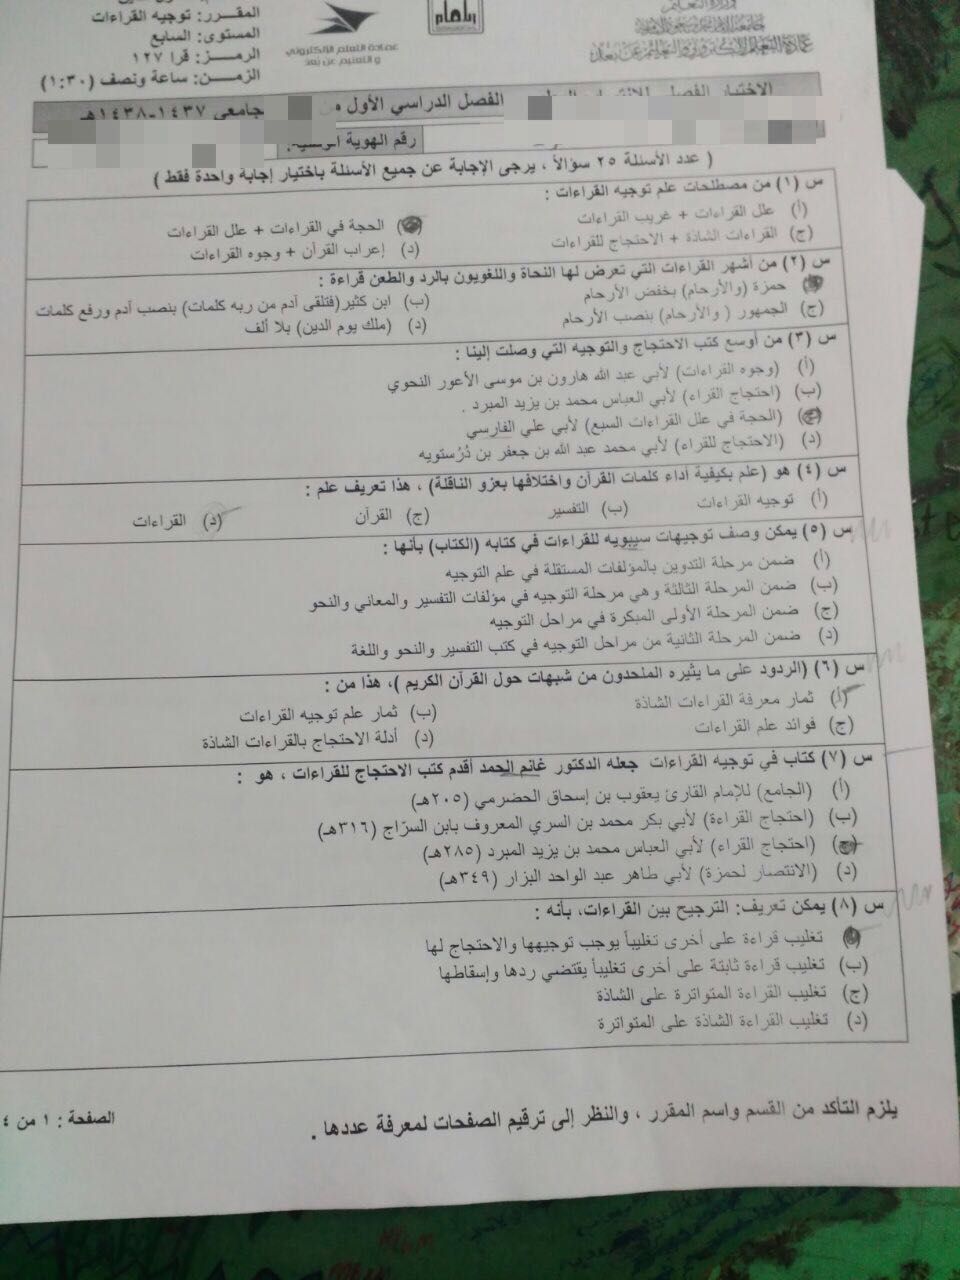 وزارة التعليم
عمادة التعلم الإلكتروني والتعليم عن بعد
عمادة التعلم الإلكتروني
والتعليم عن بعد
المقـــرر: توجيه القراءات
المستوى: السابع
الرمـــز: قرا ١٢٧
الزمـــن: ساعة ونصف (١:٣٠)
الفصل الدراسي الأول
جامعي ١٤٣٧-١٤٣٨هـ
رقم الهوية
( عدد الأسئلة ٢٥ سؤالاً ، يرجى الإجابة عن جميع الأسئلة باختيار إجابة واحدة فقط )
س (١) من مصطلحات علم توجيه القراءات :
(أ) علل القراءات + غريب القراءات
الحجة في القراءات + علل القراءات
(ج) القراءات الشاذة + الاحتجاج للقراءات
(د) إعراب القرآن + وجوه القراءات
س (٢) من أشهر القراءات التي تعرض لها النحاة واللغويون بالرد والطعن قراءة :
حمزة (والأرحام) بخفض الأرحام
(ب) ابن كثير(فتلقى آدم من ربه كلمات) بنصب آدم ورفع كلمات
(ج) الجمهور ( والأرحام) بنصب الأرحام
(د) (ملك يوم الدين) بلا ألف
س (٣) من أوسع كتب الاحتجاج والتوجيه التي وصلت إلينا :
(أ) (وجوه القراءات) لأبي عبد الله هارون بن موسى الأعور النحوي
(ب) (احتجاج القراء) لأبي العباس محمد بن يزيد المبرد .
(الحجة في علل القراءات السبع) لأبي علي الفارسي
(د) (الاحتجاج للقراء) لأبي محمد عبد الله بن جعفر بن دُرُستويه
س (٤) هو (علم بكيفية أداء كلمات القرآن واختلافها بعزو الناقلة) ، هذا تعريف علم :
(أ) توجيه القراءات (ب) التفسير (ج) القرآن (د) القراءات
س (٥) يمكن وصف توجيهات سيبويه للقراءات في كتابه (الكتاب) بأنها :
(أ) ضمن مرحلة التدوين بالمؤلفات المستقلة في علم التوجيه
(ب) ضمن المرحلة الثالثة وهي مرحلة التوجيه في مؤلفات التفسير والمعاني والنحو
(ج) ضمن المرحلة الأولى المبكرة في مراحل التوجيه
(د) ضمن المرحلة الثانية من مراحل التوجيه في كتب التفسير والنحو واللغة
س (٦) (الردود على ما يثيره الملحدون من شبهات حول القرآن الكريم )، هذا من :
(أ) ثمار معرفة القراءات الشاذة
(ب) ثمار علم توجيه القراءات
(ج) فوائد علم القراءات
(د) أدلة الاحتجاج بالقراءات الشاذة
س (٧) كتاب في توجيه القراءات جعله الدكتور غانم الحمد أقدم كتب الاحتجاج للقراءات ، هو :
(أ) (الجامع) للإمام القارئ يعقوب بن إسحاق الحضرمي (٢٠٥هـ)
(ب) (احتجاج القراءة) لأبي بكر محمد بن السري المعروف بابن السرّاج (٣١٦هـ)
(ج) (احتجاج القراء) لأبي العباس محمد بن يزيد المبرد (٢٨٥هـ)
(د) (الانتصار لحمزة) لأبي طاهر عبد الواحد البزار (٣٤٩هـ)
س (٨) يمكن تعريف: الترجيح بين القراءات، بأنه :
تغليب قراءة على أخرى تغليباً يوجب توجيهها والاحتجاج لها
(ب) تغليب قراءة ثابتة على أخرى تغليباً يقتضي ردها وإسقاطها
(ج) تغليب القراءة المتواترة على الشاذة
(د) تغليب القراءة الشاذة على المتواترة
يلزم التأكد من القسم واسم المقرر ، والنظر إلى ترقيم الصفحات لمعرفة عددها .
الصفحة : ١ من ٤